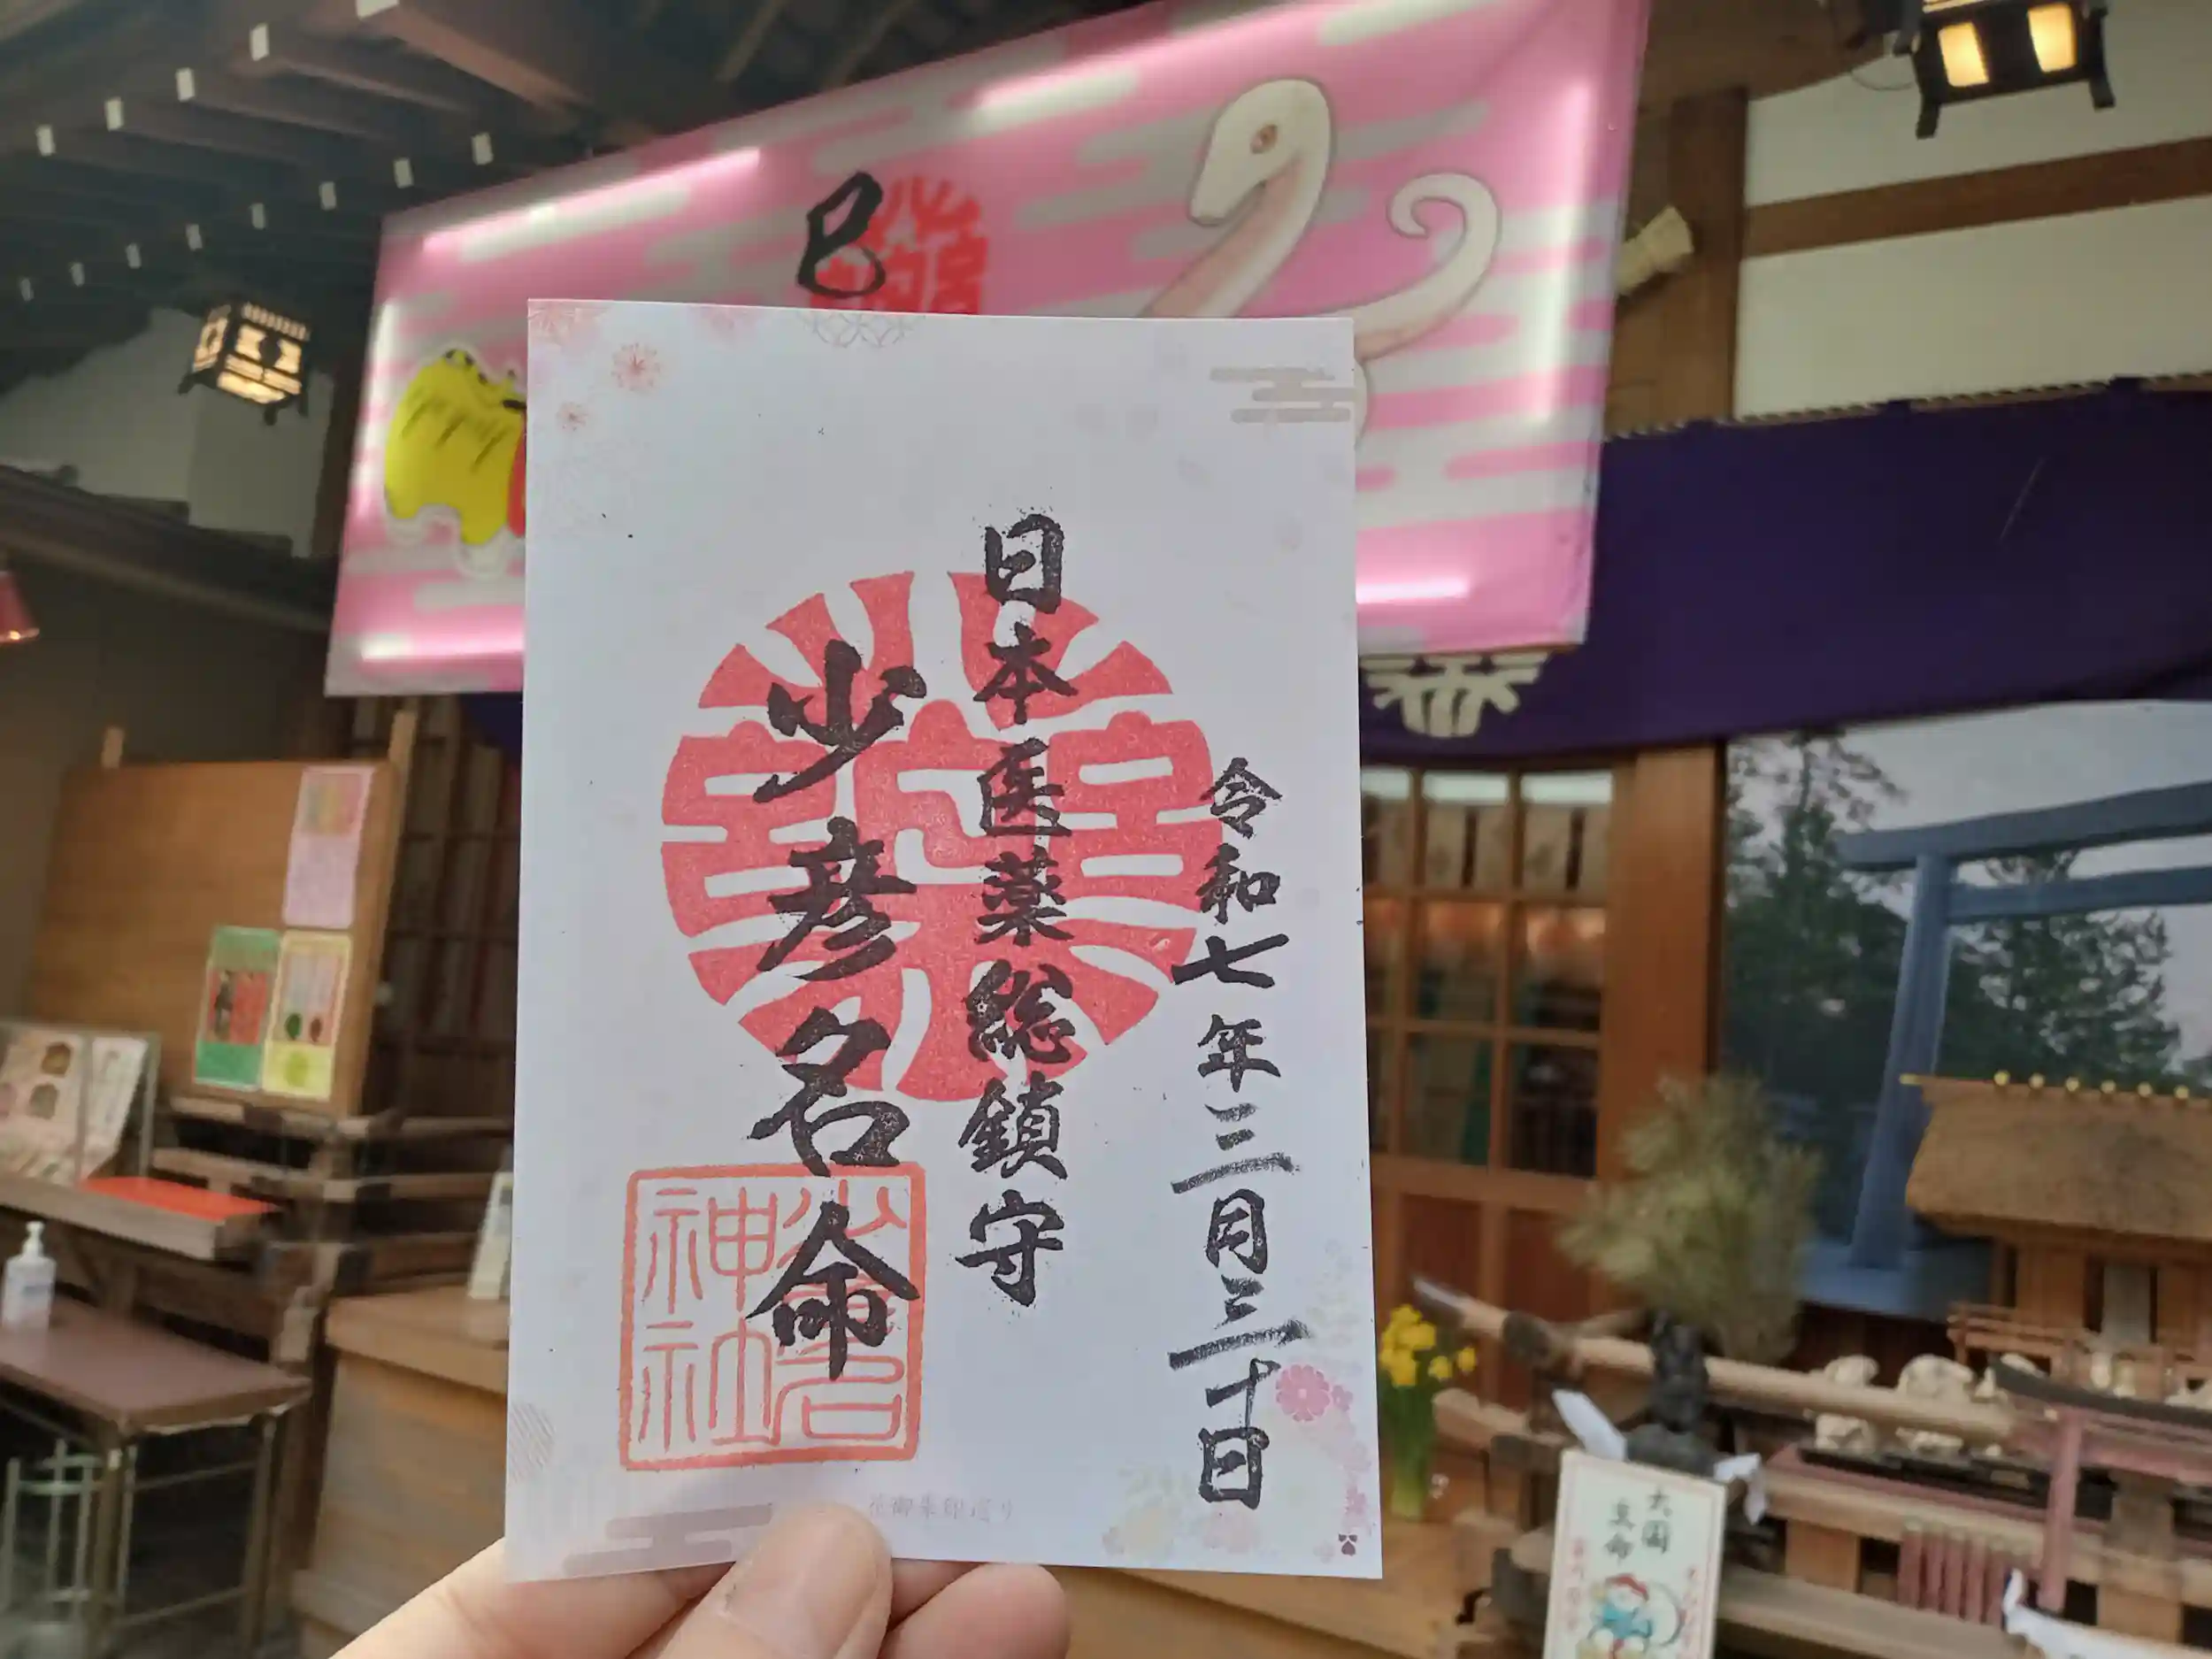 巳
令和七年三月三十日
日本医薬総鎮守
少彦名命
少彦名
神社
花御朱印巡り
大国
主命